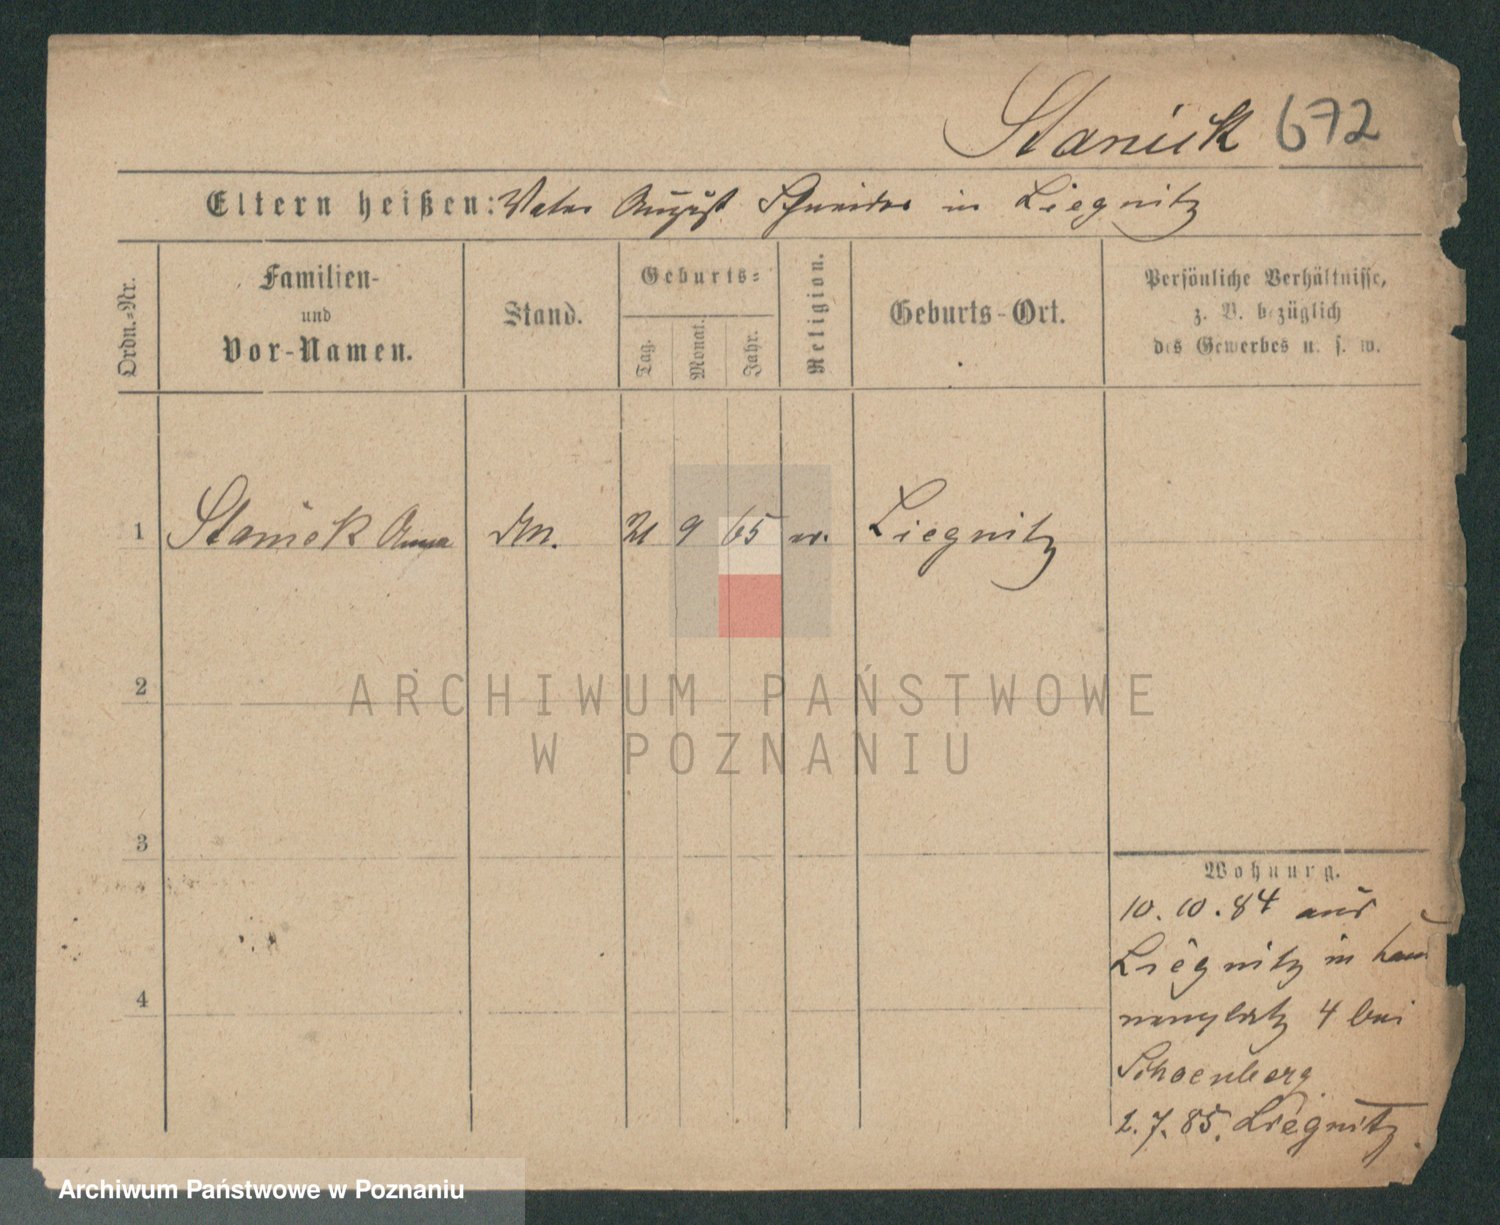 Stanick 672
Eltern heißen: Vater August Schneider in Liegnitz
Ordn.-Nr.
Familien-
und
Vor-Namen.
Stand.
Geburts-
Tag.
Monat.
Jahr.
Religion.
Geburts-Ort.
Persönliche Verhältnisse,
z. B. bezüglich
des Gewerbes u. s. w.
1 Stanick Anna 21 9 65 Liegnitz
2
3
4
Wohnung.
10.10.84 aus
Liegnitz in
4 bei
Schoenberg
2.7.85. Liegnitz
ARCHIWUM PAŃSTWOWE
W POZNANIU
Archiwum Państwowe w Poznaniu